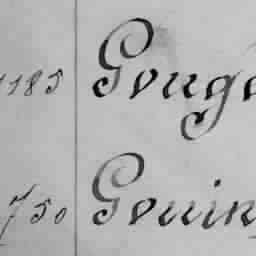 1185 Gouge
750 Gouin